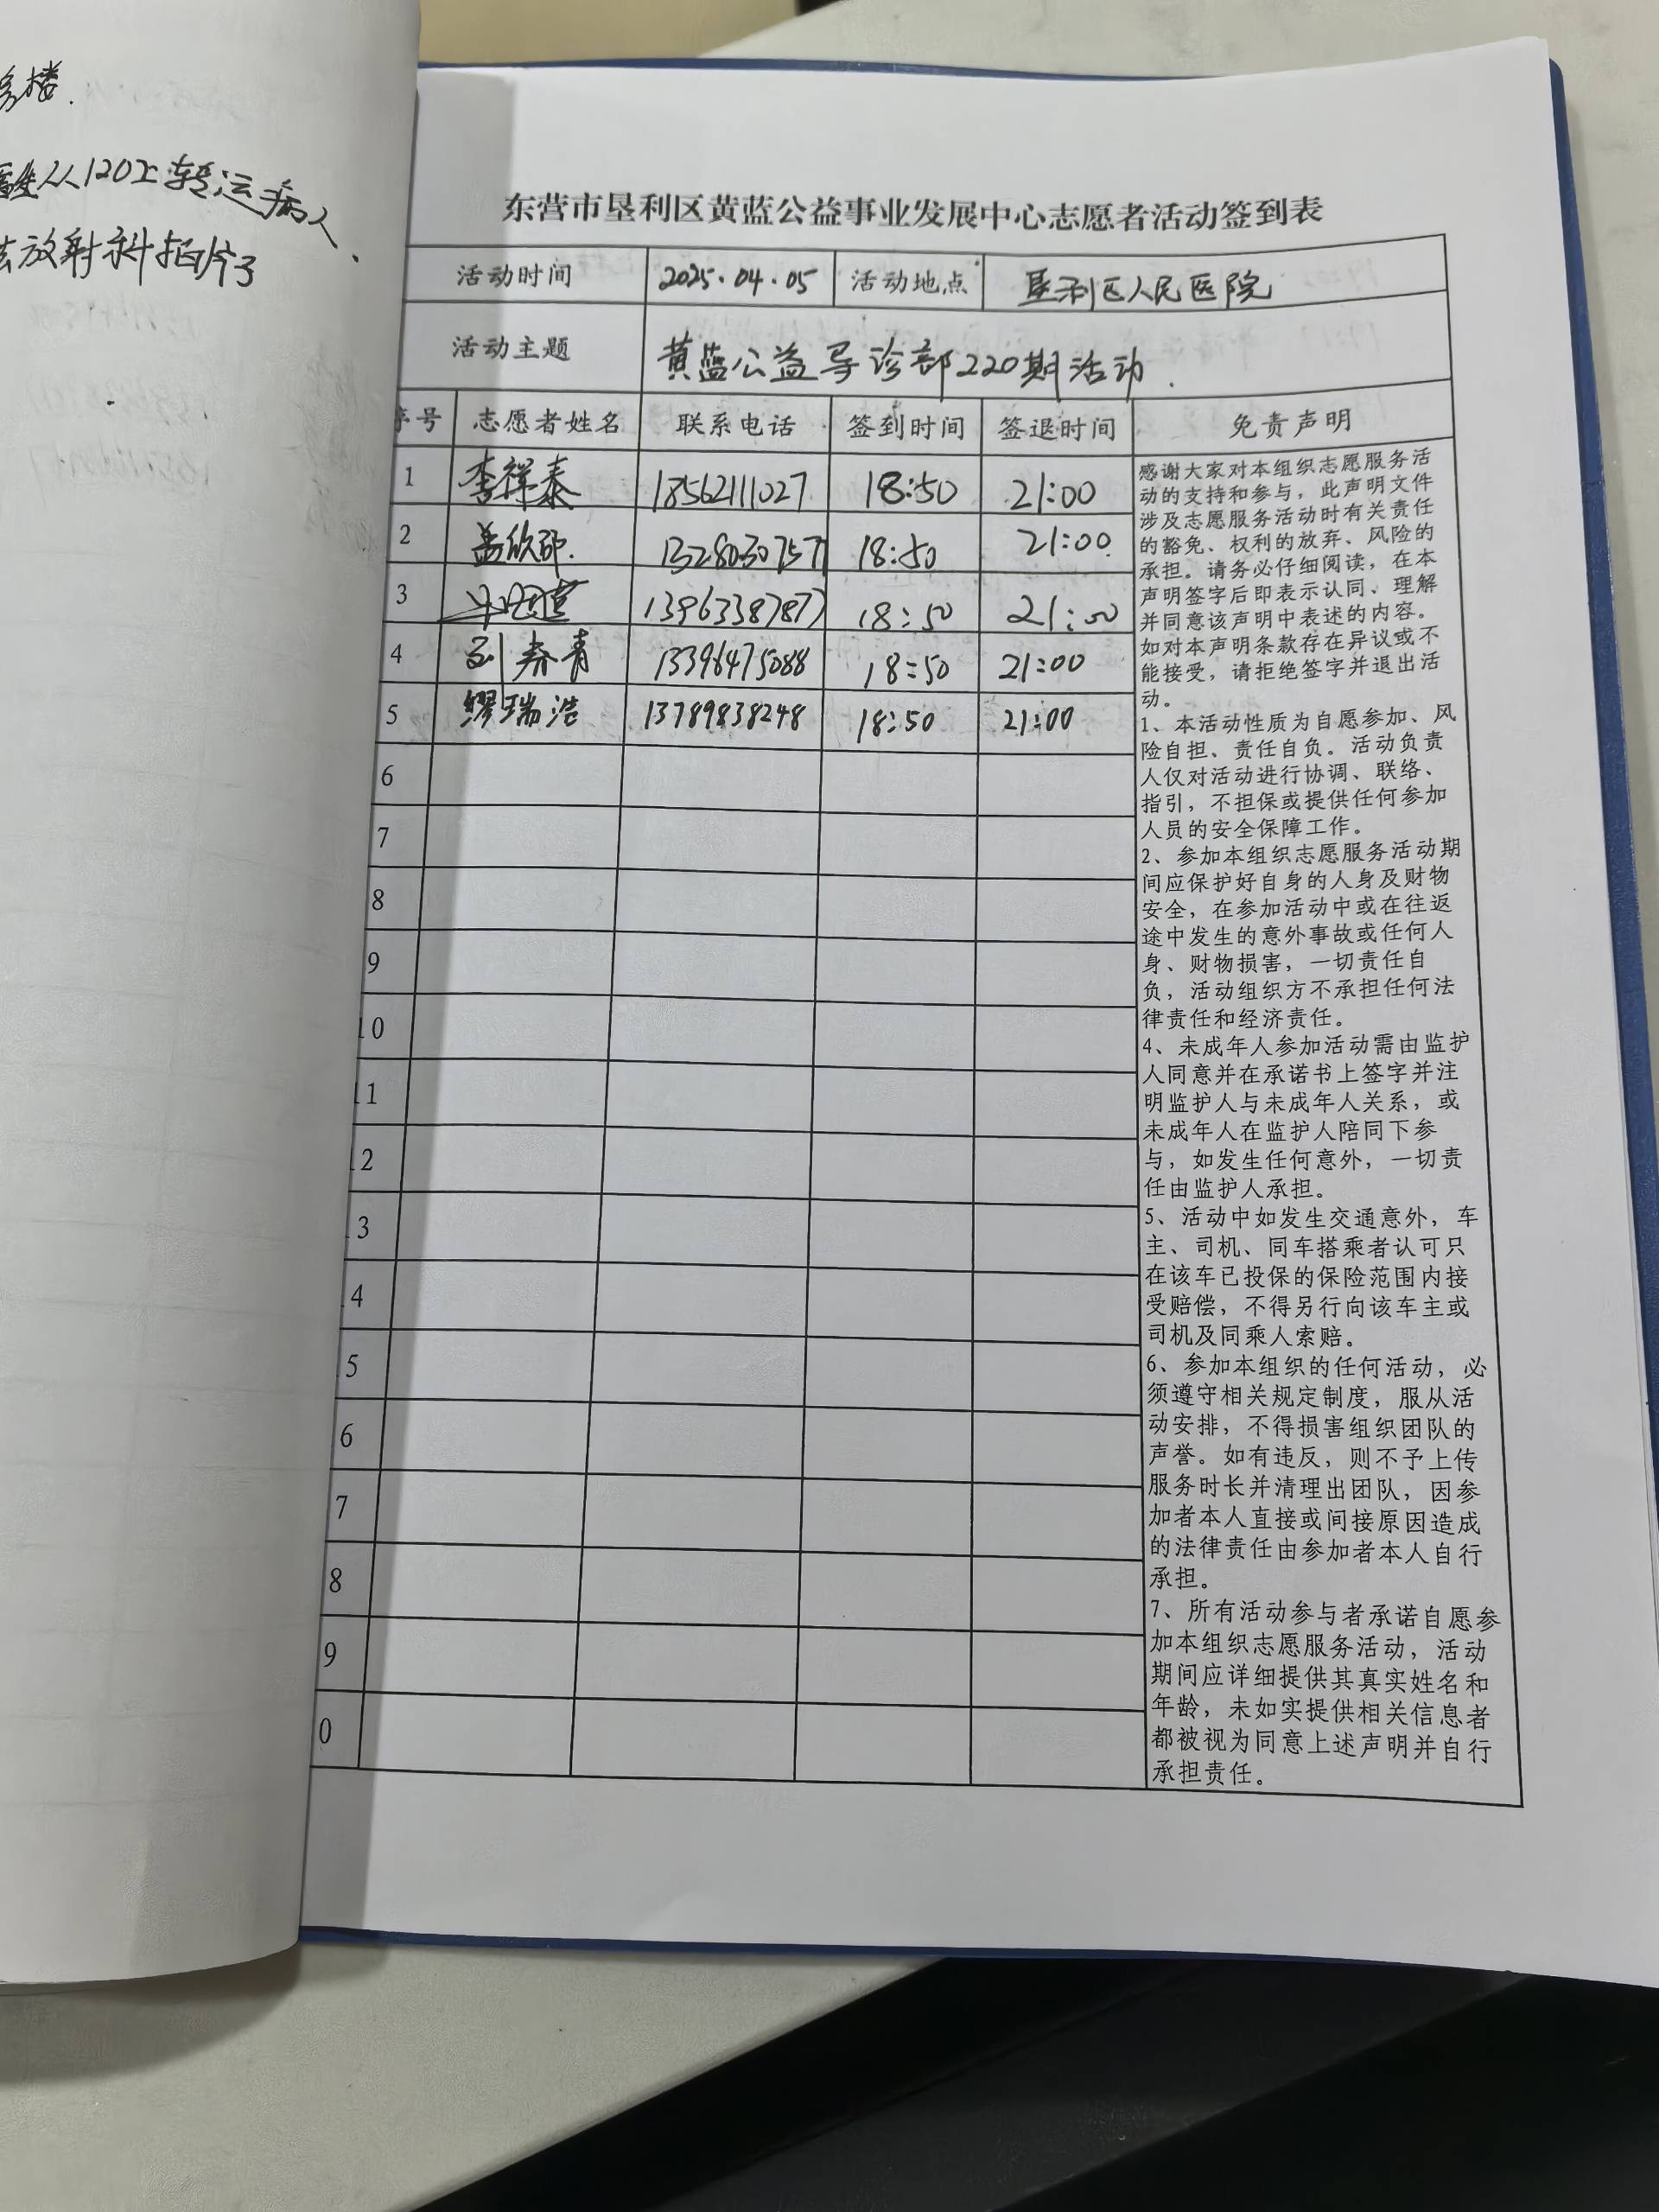 楼.
从120上转运病人.
去放射科拍片子
东营市垦利区黄蓝公益事业发展中心志愿者活动签到表
活动时间 2025.04.05 活动地点 垦利区人民医院
活动主题 黄蓝公益导诊部220期活动.
序号 志愿者姓名 联系电话 签到时间 签退时间 免责声明
1 李祥泰 18562111027 18:50 21:00
2 盖欣 13280307571 18:50 21:00
3 13963387877 18:50 21:00
4 刘春青 13396475088 18:50 21:00
5 缪瑞浩 13789838248 18:50 21:00
6
7
8
9
10
11
12
3
4
5
6
7
8
9
0
感谢大家对本组织志愿服务活
动的支持和参与，此声明文件
涉及志愿服务活动时有关责任
的豁免、权利的放弃、风险的
承担。请务必仔细阅读，在本
声明签字后即表示认同、理解
并同意该声明中表述的内容。
如对本声明条款存在异议或不
能接受，请拒绝签字并退出活
动。
1、本活动性质为自愿参加、风
险自担、责任自负。活动负责
人仅对活动进行协调、联络、
指引，不担保或提供任何参加
人员的安全保障工作。
2、参加本组织志愿服务活动期
间应保护好自身的人身及财物
安全，在参加活动中或在往返
途中发生的意外事故或任何人
身、财物损害，一切责任自
负，活动组织方不承担任何法
律责任和经济责任。
4、未成年人参加活动需由监护
人同意并在承诺书上签字并注
明监护人与未成年人关系，或
未成年人在监护人陪同下参
与，如发生任何意外，一切责
任由监护人承担。
5、活动中如发生交通意外，车
主、司机、同车搭乘者认可只
在该车已投保的保险范围内接
受赔偿，不得另行向该车主或
司机及同乘人索赔。
6、参加本组织的任何活动，必
须遵守相关规定制度，服从活
动安排，不得损害组织团队的
声誉。如有违反，则不予上传
服务时长并清理出团队，因参
加者本人直接或间接原因造成
的法律责任由参加者本人自行
承担。
7、所有活动参与者承诺自愿参
加本组织志愿服务活动，活动
期间应详细提供其真实姓名和
年龄，未如实提供相关信息者
都被视为同意上述声明并自行
承担责任。